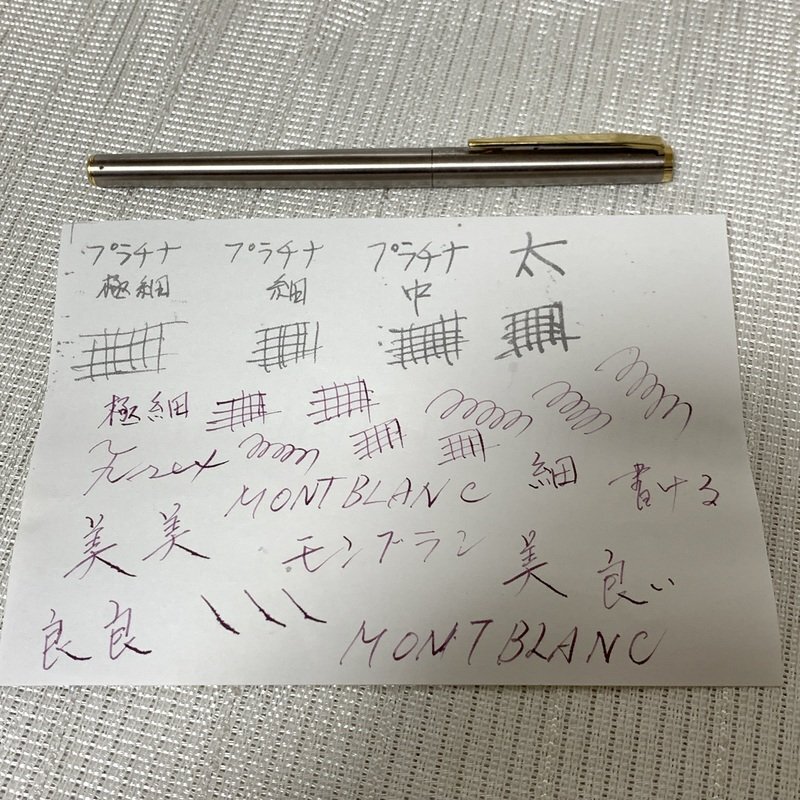 プラチナ プラチナ プラチナ 太
極細 細 中
極細
MONTBLANC 細 書ける
美 美 モンブラン 美 良い
良 良 MONTBLANC